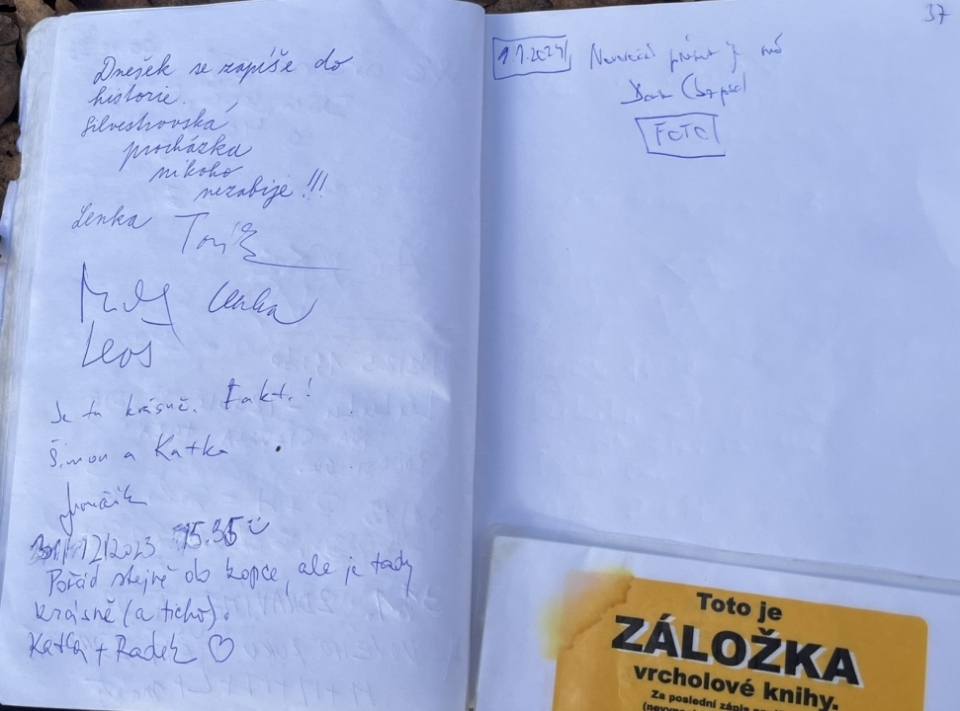 Dnešek se zapíše do
historie.
Silvestrovská
procházka
nikoho
nezabije !!!
Lenka
Leos
Je tu krásně. Fakt.!
Šimon a Katka
31/12/2023 15:35
Pořád stejně do kopce, ale je tady
krásně (a ticho).
Katka + Radek ♡
37
1.1.2024
FOTO
Toto je
ZÁLOŽKA
vrcholové knihy.
Za poslední zápis